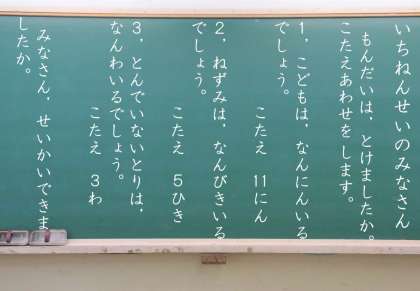 いちねんせいのみなさん
もんだいは、とけましたか。
こたえあわせをします。
1、こどもは、なんにんいる
でしょう。
こたえ 11にん
2、ねずみは、なんびきいる
でしょう。
こたえ 5ひき
3、とんでいないとりは、
なんわいるでしょう。
こたえ 3わ
みなさん、せいかいできま
したか。